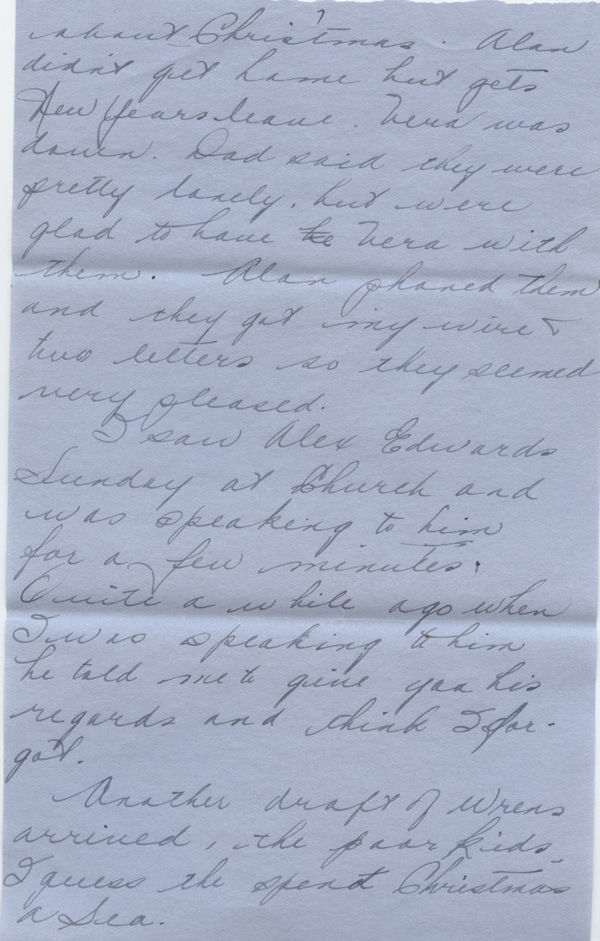 about Christmas. Alan
didn't get home but gets
New Years leave. Vera was
down. Dad said they were
pretty lonely, but were
glad to have Vera with
them. Alan phoned them
and they got my wire &
two letters so they seemed
very pleased.
I saw Alex Edwards
Sunday at Church and
was speaking to him
for a few minutes.
Quite a while ago when
I was speaking to him
he told me to give you his
regards and think I for-
got.
Another draft of Wrens
arrived, the poor kids,
I guess the spend Christmas
a Sea.